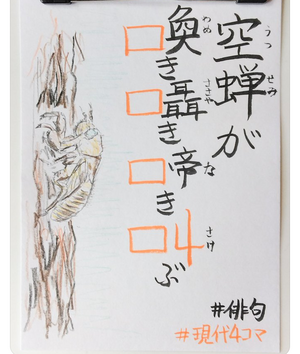 空蝉が
うつせみ
□奐き
わめ
□聶き
ささや
□帝き
な
□丩ぶ
さけ
#俳句
#現代4コマ